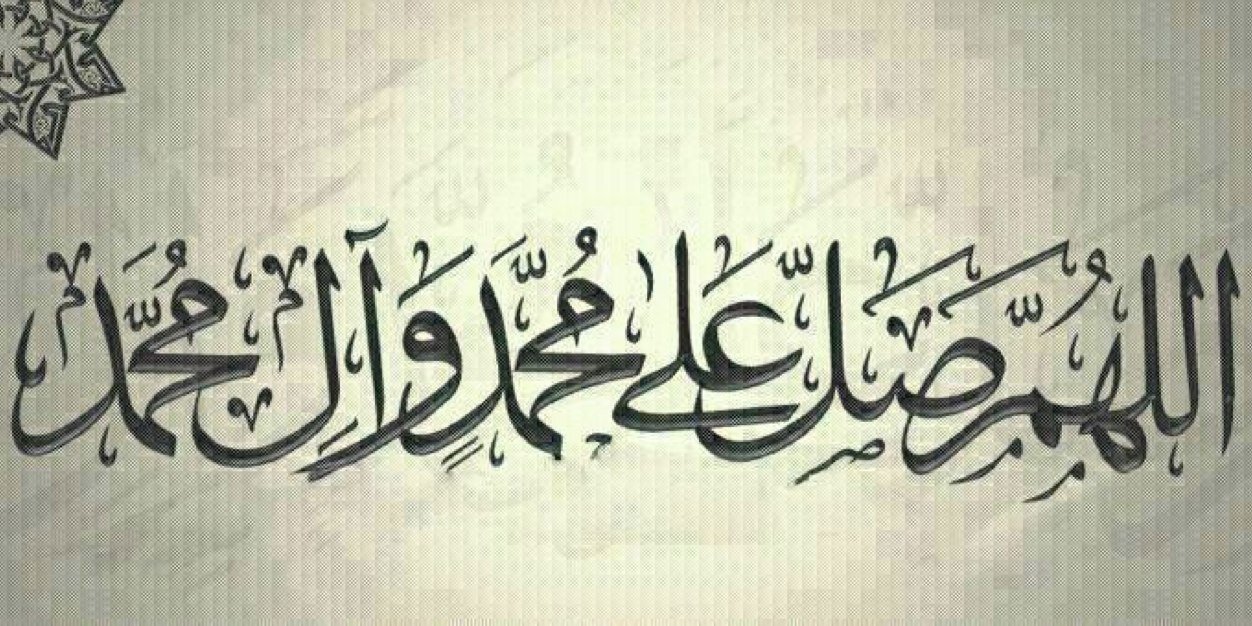 اللهُمَّ صَلِّ عَلى مُحَمَّدٍ وَآلِ مُحَمَّد